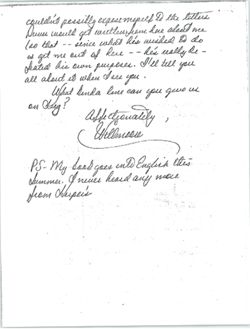 couldn't possibly expose myself to the letters
Dunn would get written from here about me
(so that -- since what he wished to do
is get me out of here -- he's really de-
feated his own purposes. I'll tell you
all about it when I see you.
What kinda line can you give us
on
Affectionately,
PS- My book goes into English this
summer. I never heard any more
from Harper's